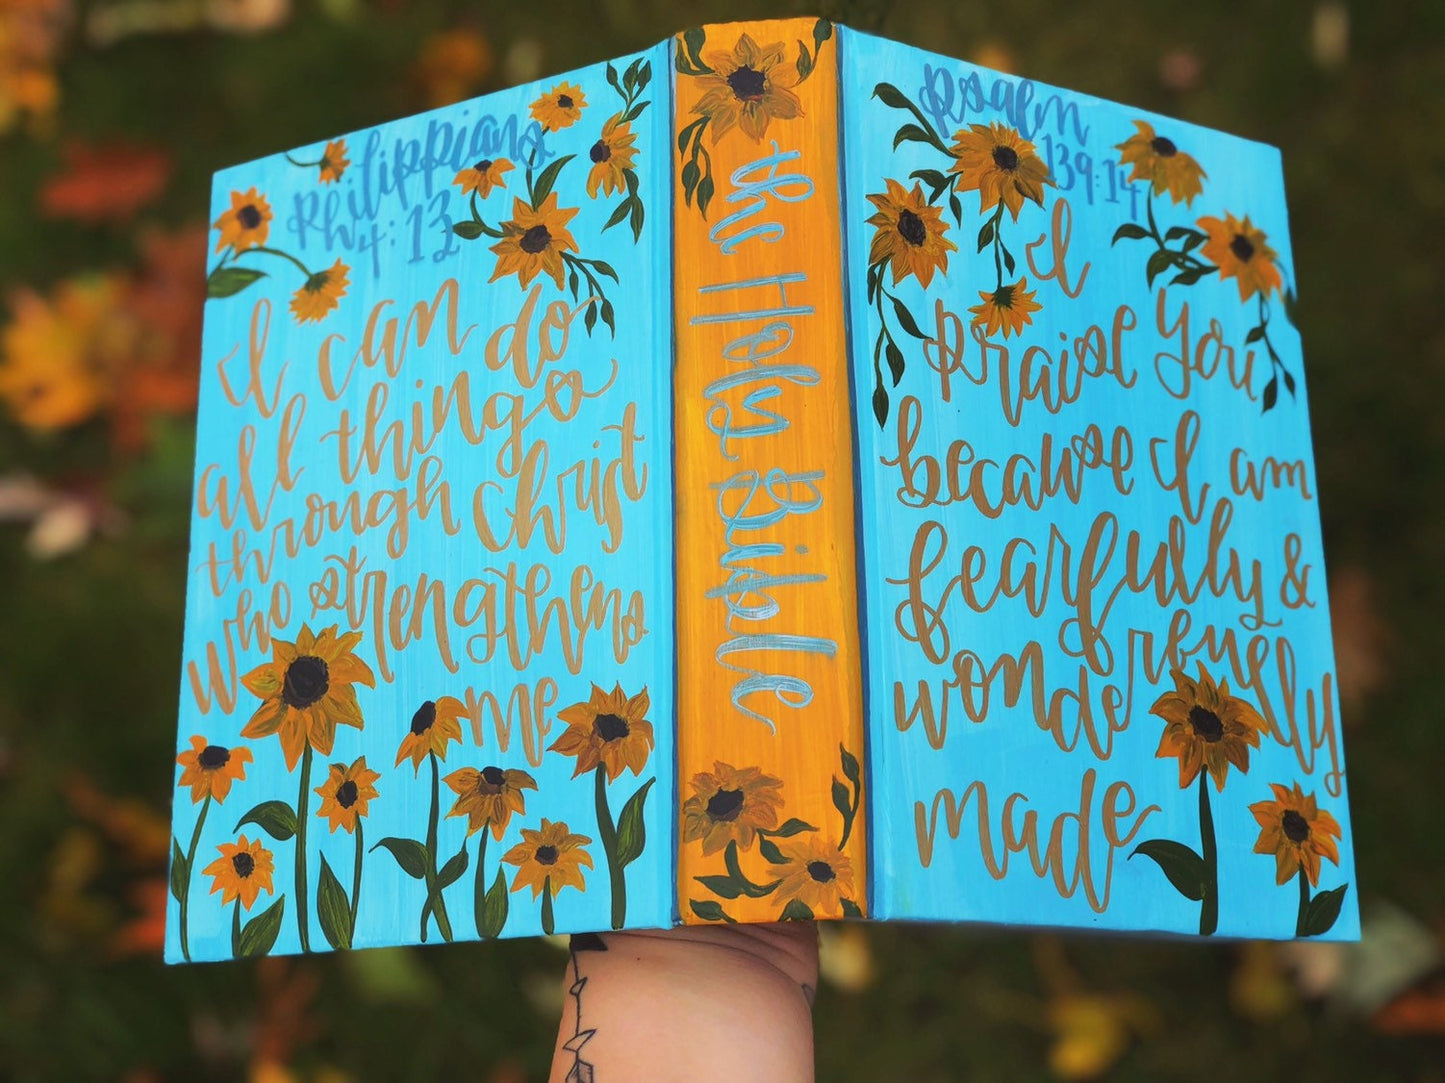 Philippians
4:13
I can do
all things
through Christ
who strengthens
me
the Holy Bible
Psalm
139:14
I
praise you
because I am
fearfully &
wonderfreully
made